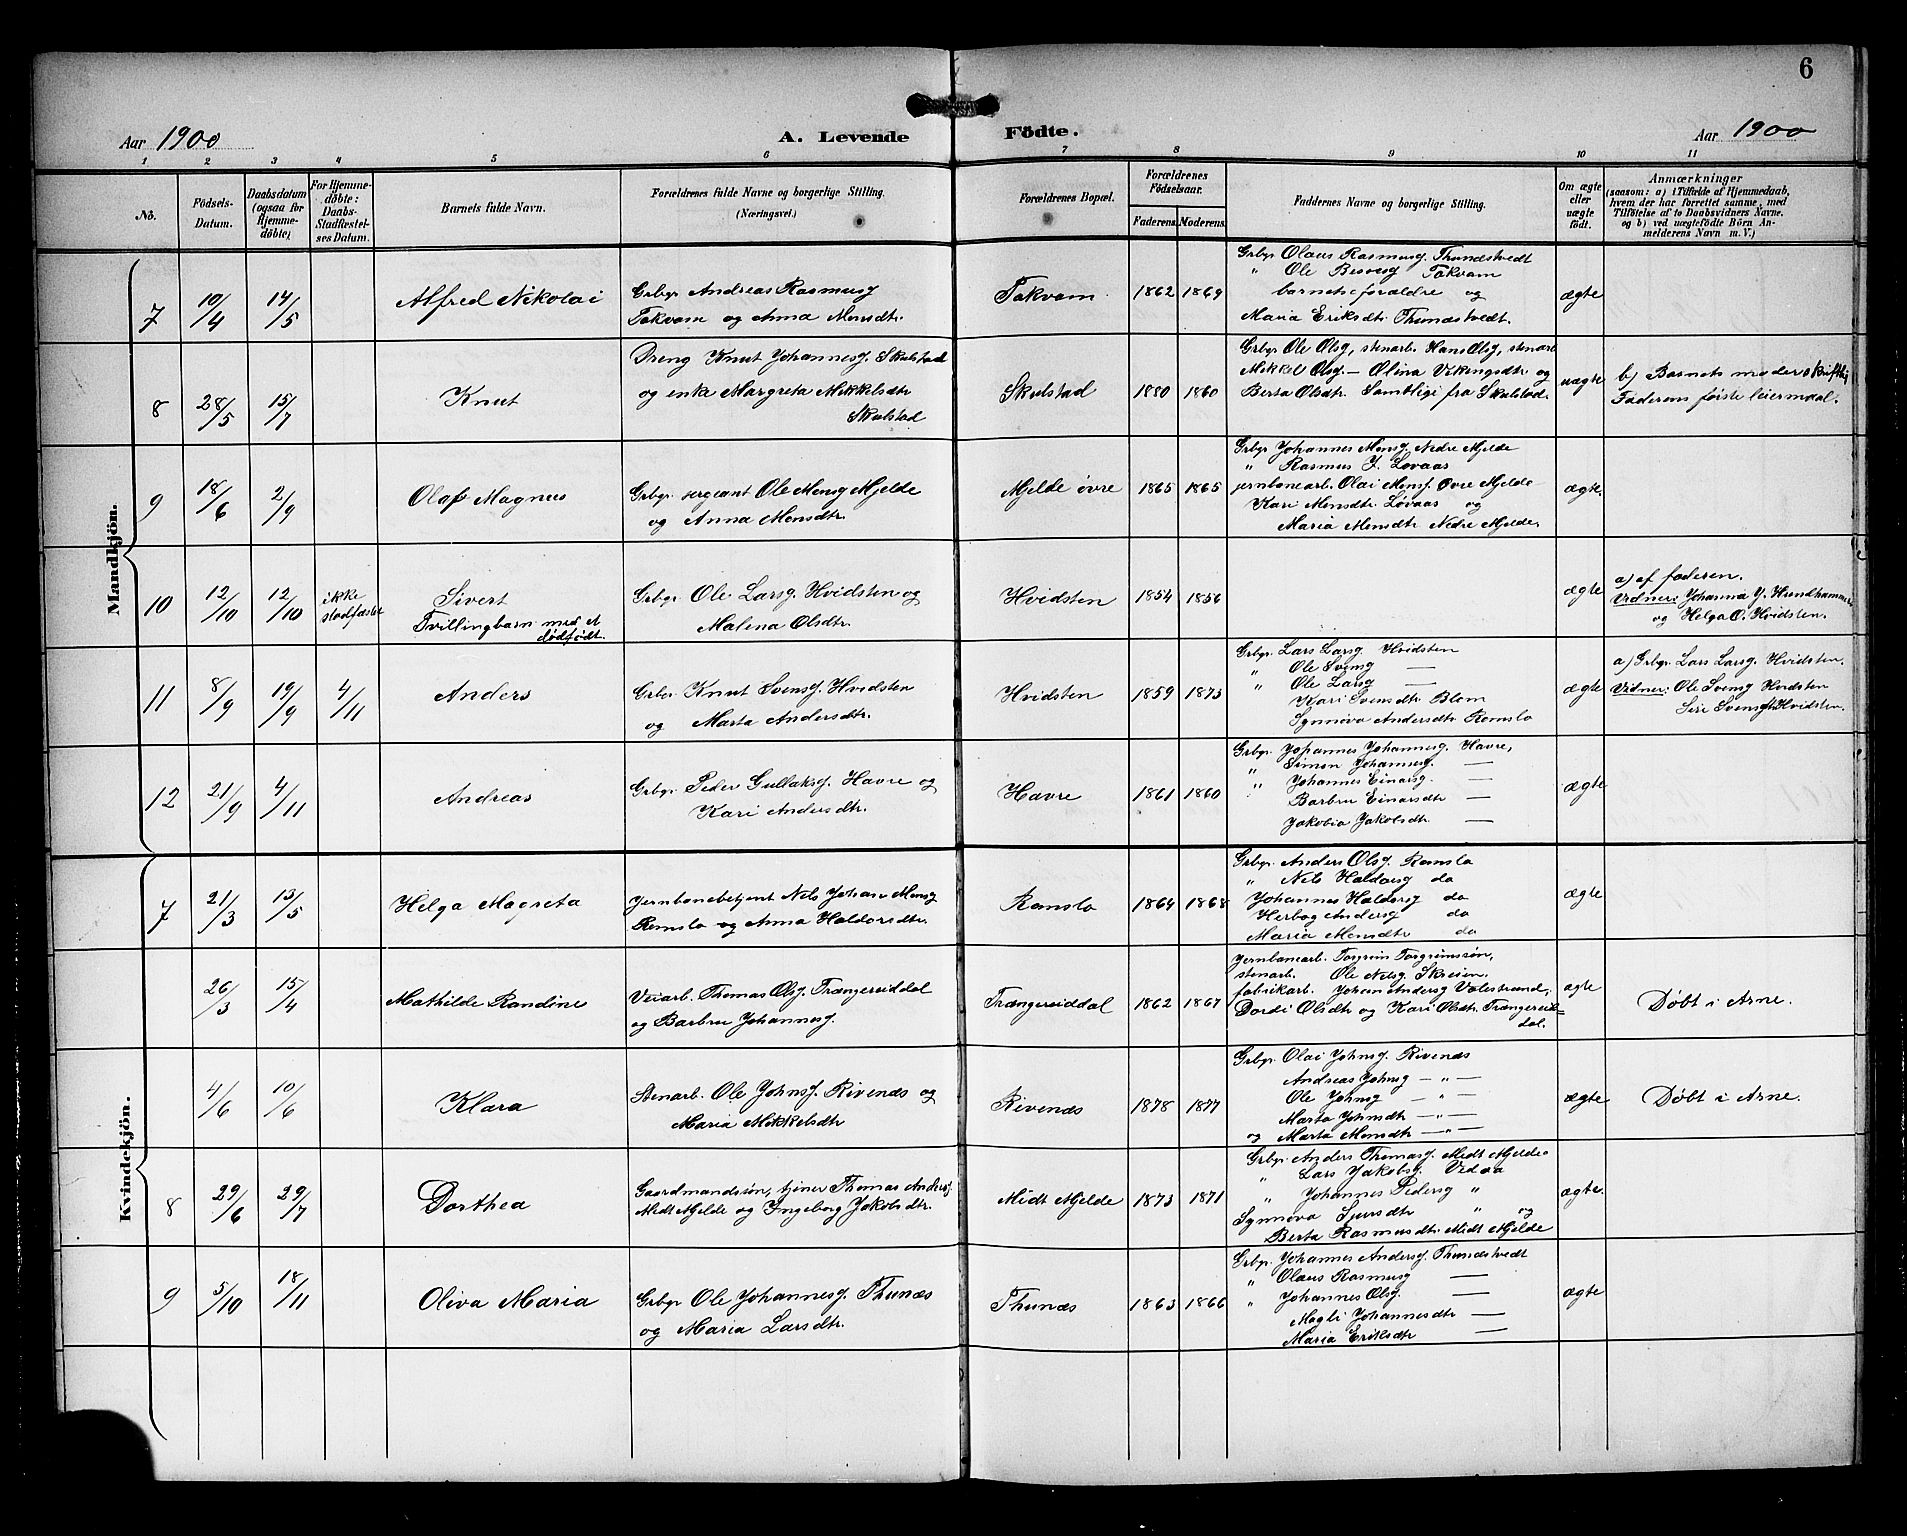 6
Aar 1900
A. Levende Födte.
Aar 1900
1 2 3 4 5 6 7 8 9 10 11
No.
Födsels-
Datum.
Daabsdatum
(ogsaa for
Hjemme-
döbte)
For Hjemme-
döbte:
Daabs-
Stadfæstel-
ses Datum.
Barnets fulde Navn.
Forældrenes fulde Navne og borgerlige Stilling.
(Næringsvei.)
Forældrenes Bopæl.
Forældrenes
Födselsaar.
Faderens Moderens
Faddernes Navne og borgerlige Stilling.
Om ægte
eller
uægte
födt.
Anmærkninger
(saasom: a) i Tilfælde af Hjemmedaab,
hvem der har forrettet samme, med
Tilföielse af to Daabsvidners Navne.
og b) ved uægtefödte Börn An-
melderens Navn m. V.)
Mandkjön.
7 10/4 14/5 Alfred Nikolai
Grbgr. Andreas Rasmusg
Takvam og Anna Monsdtr.
Takvam 1862 1869
Grbgr Olaus Rasmusg. Thunestvedt
" Ole Takvam
barnets forældre og
Maria Eriksdtr. Thunestvedt.
ægte
8 28/5 15/7 Knut
Dreng Knut Johannesg. Skulstad
og enke Margreta Mikkelsdtr
Skulstad
Skulstad 1880 1860
Grbgr Ole Olsg, stenarb. Hans Olsg, stenarb
Mikkel Olsg – Olina Vikingsdtr og
Berta Olsdtr. Samtlige fra Skulstad.
uægte
b) Barnets moder skriftlig
Faderens første leiermaal.
9 18/6 2/9 Olaf Magnus
Grbgr. sergeant Ole Monsg Mjelde
og Anna Monsdtr.
Mjelde øvre 1865 1865
Grbgr Johannes Monsg. Nedre Mjelde
" Rasmus J. Løvaas
jernbanearb. Olai Monsg. Øvre Mjelde
Kari Monsdtr. Løvaas og
Maria Monsdtr Nedre Mjelde.
ægte.
10 12/10 12/10 ikke
stadfæstet
Sivert
Tvillingbarn med et
dødfødt.
Grbgr. Ole Larsg. Hvidsten og
Malena Olsdtr.
Hvidsten 1854 1856
ægte
a) af faderen.
Vidner: Johanna J. Hundhammer
og Helga O. Hvidsten.
11 8/9 19/9 4/11 Anders
Grbgr. Knut Svensg. Hvidsten
og Marta Andersdtr.
Hvidsten 1859 1873
Grbgr. Lars Larsg. Hvidsten
" Ole Svensg —
" Ole Larsg —
Kari Svensdtr Blom
Synnøva Andersdtr Romslo
ægte
a) Grbgr. Lars Larsg. Hvidsten.
Vidner: Ole Svensg Hvidsten
Siri Svensdtr Hvidsten.
12 21/9 4/11 Andreas
Grbgr. Peder Gullaksg. Havre og
Kari Andersdtr.
Havre 1861 1860
Grbgr. Johannes Johannesg. Havre,
" Simon Johannesg. —
" Johannes Einarsg. —
Barbru Einarsdtr —
Jakobia Jakobsdtr. —
ægte
Kvindekjön.
7 21/3 13/5 Helga Magreta
Jernbanebetjent Nils Johan Monsg
Romslo og Anna Haldorsdtr.
Romslo 1864 1868
Grbgr. Anders Olsg. Romslo
" Nils Haldorsg do
Johannes Haldorsg do
Herbog Andersg do
Maria Monsdtr do
ægte
26/3 15/4 Mathilde Randine
Veiarb. Thomas Olsg. Trængereiddal
og Barbru Johannesg.
Trængereiddal 1862 1867
Jernbanearb. Torgrim Torgrimssøn,
stenarb. Ole Nilsg. Skreien.
fabrikarb. Johan Andersg Valestrand,
Dordi Olsdtr og Kari Olsdtr. Trængereid-
dal.
ægte
Døbt i Arne.
4/6 10/6 Klara
Stenarb. Ole Johnsg. Rivenæs og
Maria Mikkelsdtr
Rivenæs 1878 1877
Grbgr. Olai Johnsg. Rivenæs
Andreas Johnsg — " —
Ole Johnsg — " —
Marta Johnsdtr — " —
og Marta Monsdtr — " —
ægte
Døbt i Arne.
8 29/6 29/7 Dorthea
Gaardmandssøn, tjener Thomas Andersg.
Midt Mjelde og Ingeborg Jakobsdtr.
Midt Mjelde 1873 1871
Grbgr. Anders Thomasg. Midt Mjelde
" Lars Jakobsg. Vidaa
" Johannes Pedersg "
Synnøva Sjursdtr " og
Berta Rasmusdtr. Midt Mjelde
ægte.
9 5/10 18/11 Oliva Maria
Grbgr Ole Johannesg. Thunæs
og Maria Larsdtr.
Thunæs 1863 1866
Grbgr. Johannes Andersg. Thunestvedt
" Olaus Rasmusg —
" Johannes Olsg. —
Magli Johannesdtr —
Maria Eriksdtr —
ægte